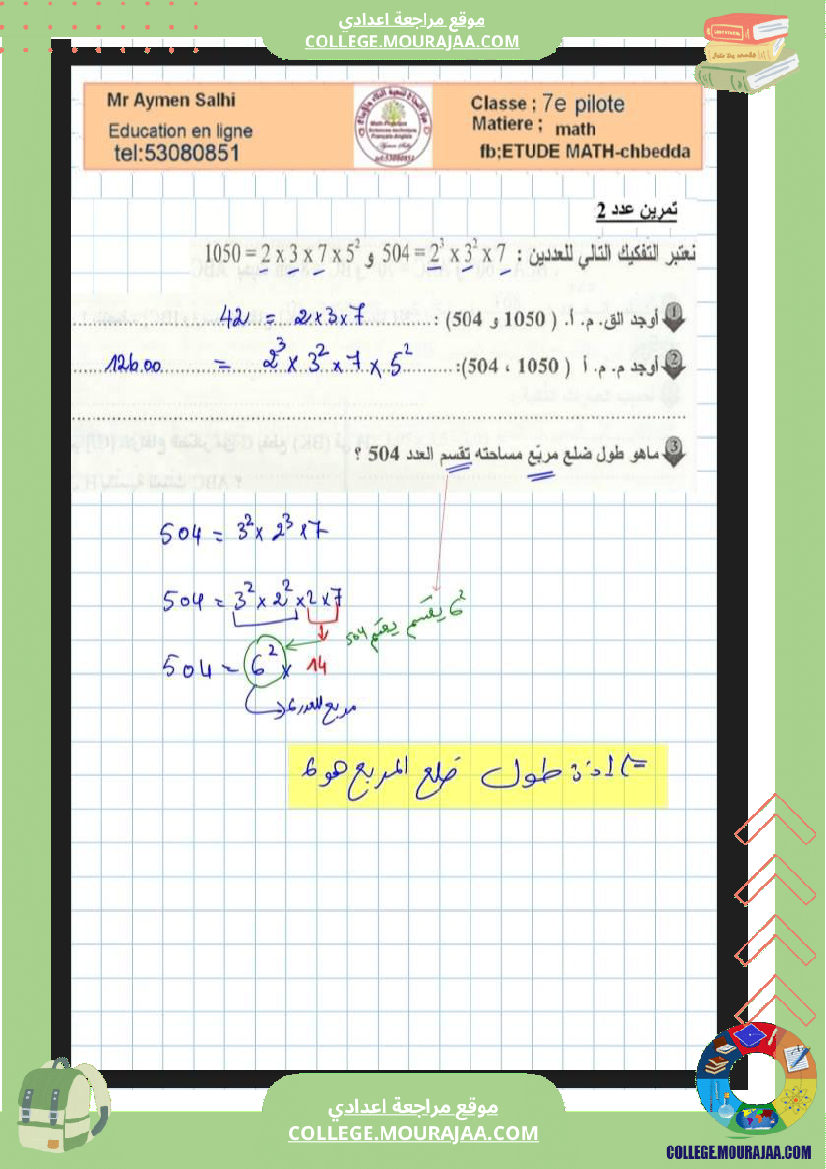 موقع مراجعة اعدادي
COLLEGE.MOURAJAA.COM
Mr Aymen Salhi
Education en ligne
tel:53080851
Classe ; 7e pilote
Matiere ; math
fb;ETUDE MATH-chbedda
تمرين عدد 2
نعتبر التّفكيك التّالي للعددين : 504 = 2³ x 3² x 7 و 1050 = 2 x 3 x 7 x 5²
1 أوجد الق. م. أ. ( 1050 و 504) : 42 = 2x3x7
2 أوجد م. م. أ ( 1050 ، 504): 12600 = 2³ x 3² x 7 x 5²
3 ماهو طول ضلع مربّع مساحته تقسم العدد 504 ؟
504 = 3² x 2³ x 7
504 = 3² x 2² x 2 x 7
6² يقسم يقسم 504
504 = 6² x 14
مربع للعدد 6
=> اذن طول ضلع المربع هو 6
موقع مراجعة اعدادي
COLLEGE.MOURAJAA.COM
COLLEGE.MOURAJAA.COM